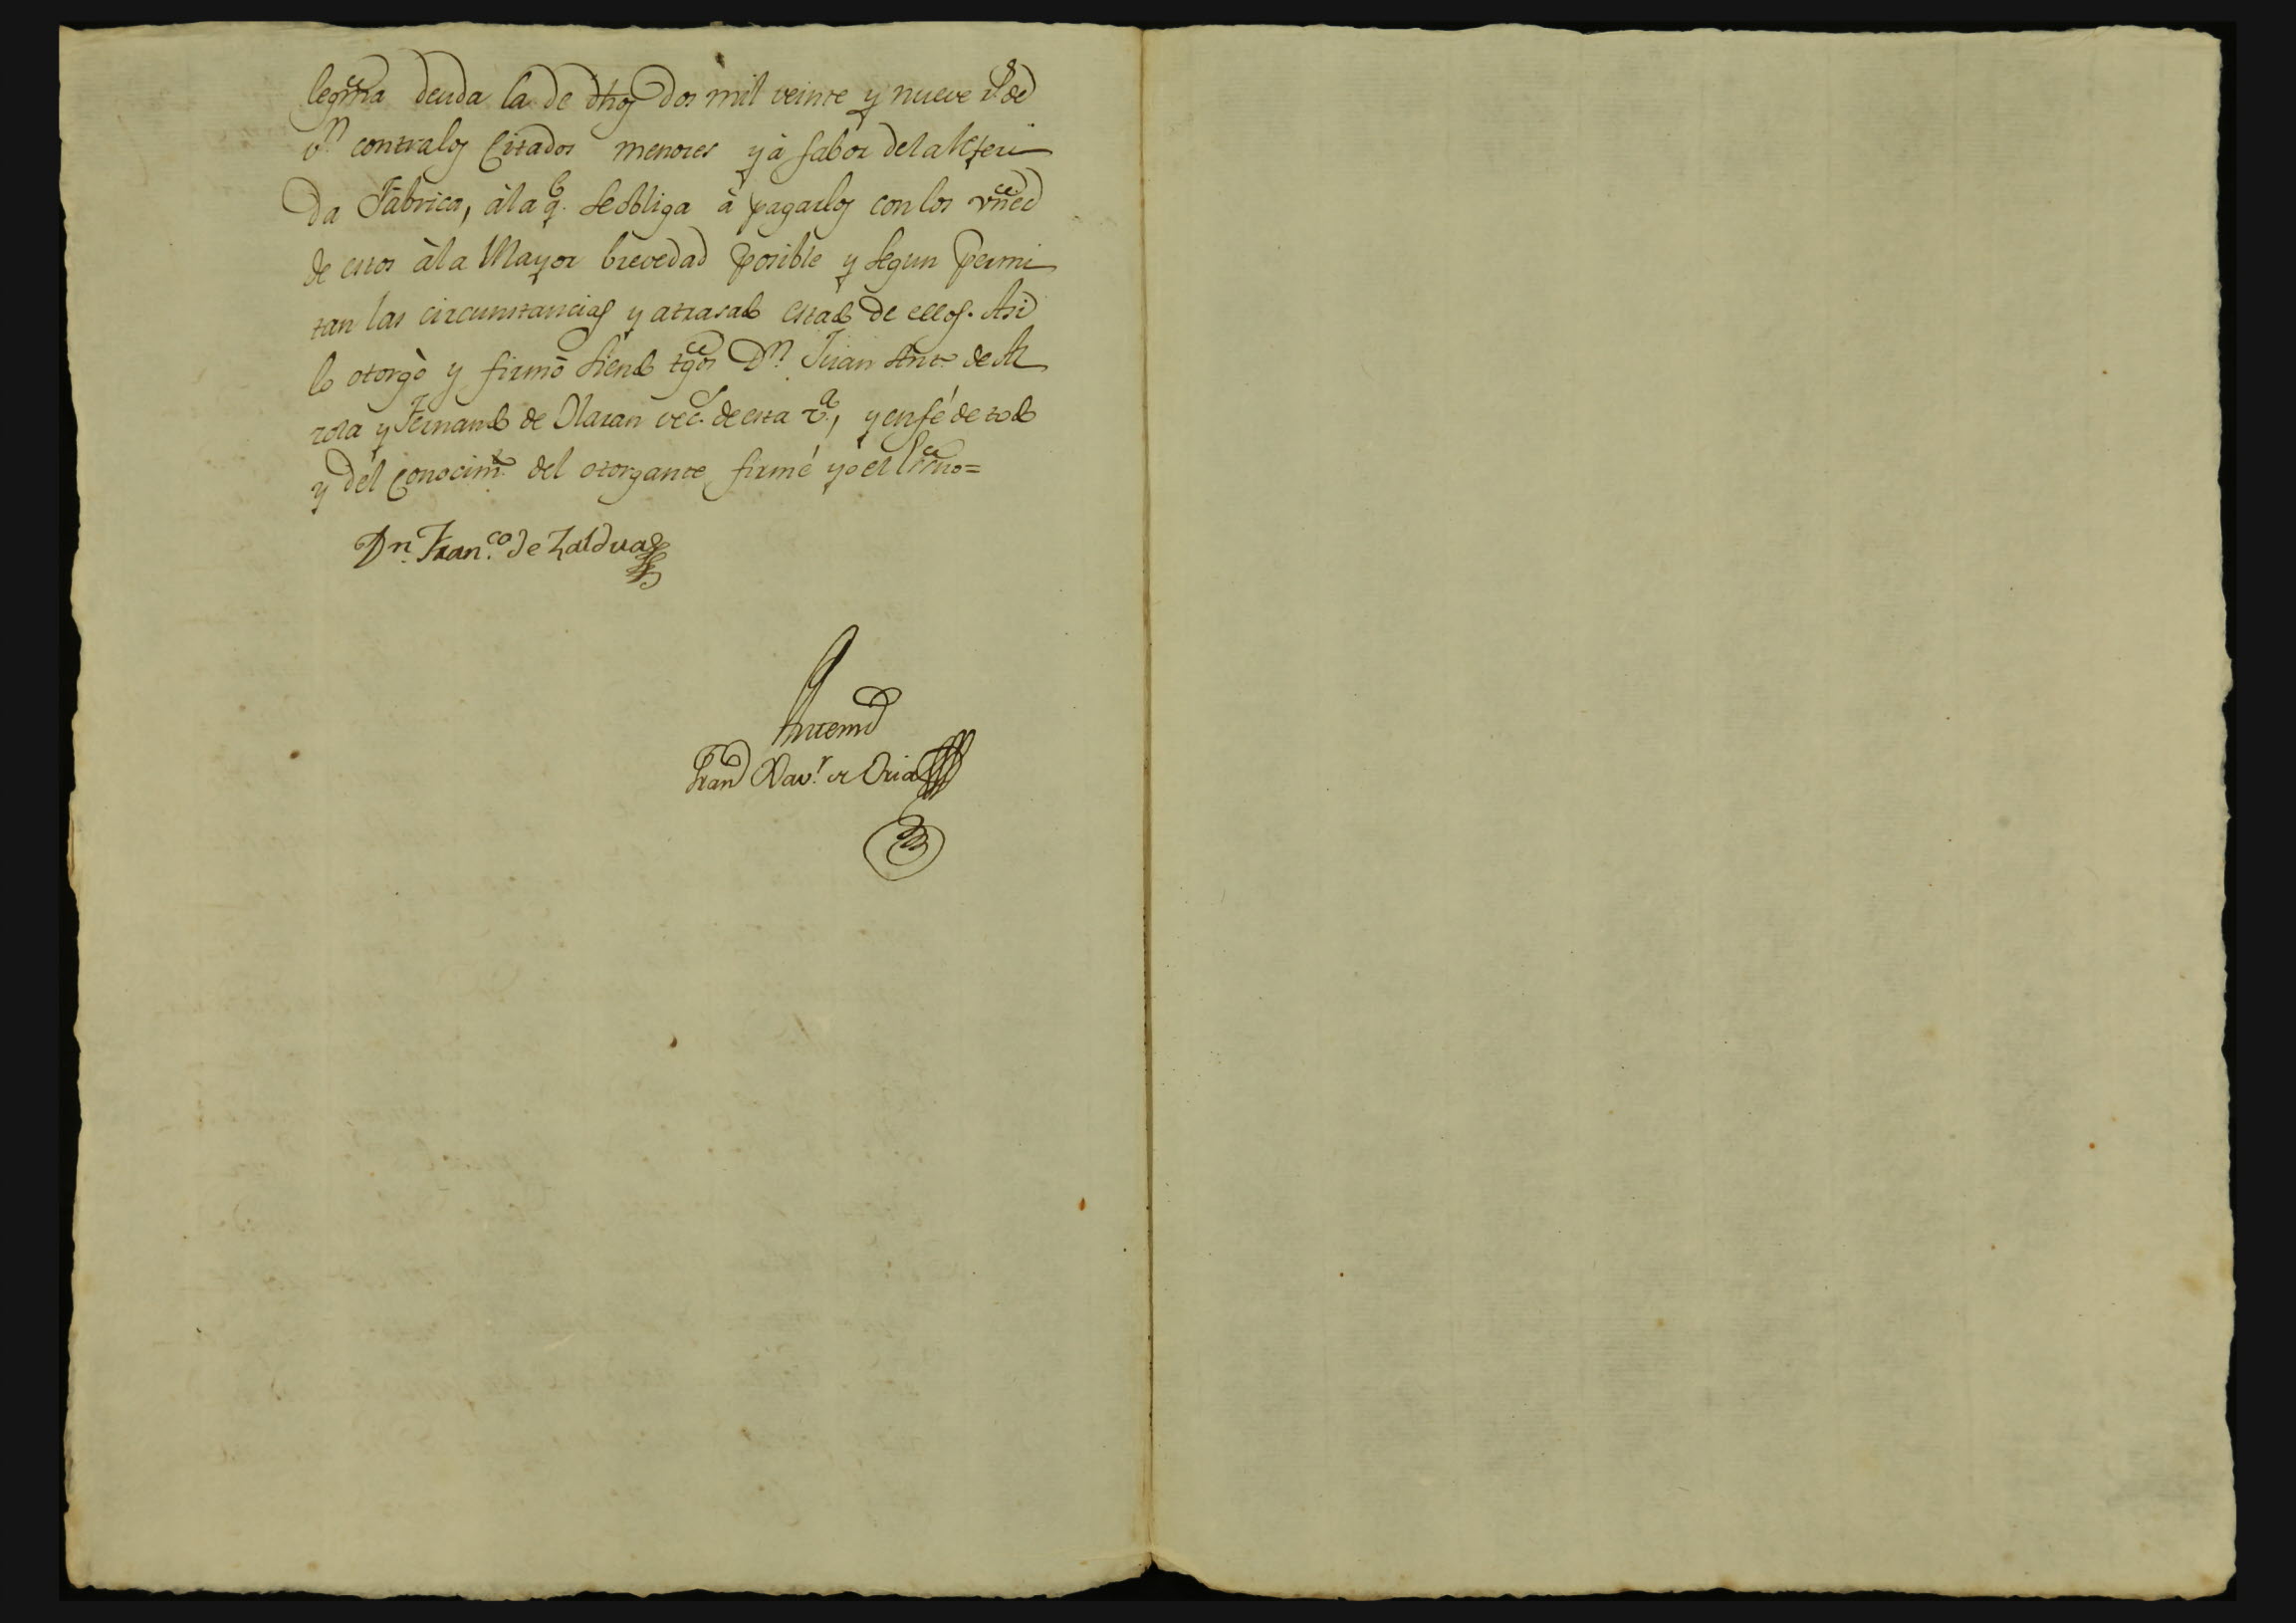 legitma deuda la de dhos dos mil veinte y nueve rs de
vn contra los Citados menores y à fabor dela Referi
da Fàbrica, àla q.e se obliga à pagarlos con los vnes
de estos àla Mayor brevedad posible y segun permi
tan las circunstancias y atrasado estado de ellos. Asi
lo otorgò y firmò siendo tgos Dn. Juan Anto. de Al
zola y Fernando de Olaran vecs. de esta va., y en fé de todo
y del Conocimto. del otorgante firmé yo el Essno=
Dn. Franco. de Zaldua
Antemi
Fran Xavr. de Oria